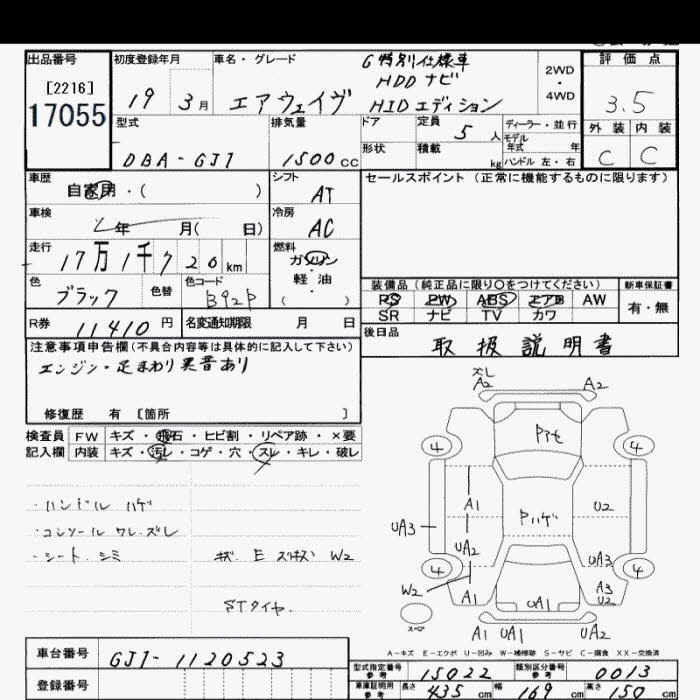 出品番号 初度登録年月 車名・グレード G 特別仕様車 評価点
[2216] HDDナビ 2WD
17055 19 3月 エアウェイヴ HIDエディション 4WD 3.5
型式 排気量 ドア 定員 5 人 ディーラー・並行 外装 内装
モデル年式 年
DBA-GJ1 1500cc 形状 積載 kg ハンドル 左・右 C C
車歴 自家用・( ) シフト AT セールスポイント (正常に機能するものに限ります)
車検 年 月( 日) 冷房 AC
走行 17万1千720km 燃料 ガソリン
軽油
( )
色 ブラック 色替 色コード B92P
装備品(純正品に限り○をつけてください) 新車保証書
PS PW ABS エアB AW 有・無
SR ナビ TV カワ
R券 11410円 名変通知期限 月 日
後日品 取扱説明書
注意事項申告欄(不具合内容等は具体的に記入して下さい)
エンジン・足まわり異音あり
修復歴 有 [箇所 ]
検査員 FW キズ・飛石・ヒビ割・リペア跡・×要
記入欄 内装 キズ・汚レ・コゲ・穴・スレ・キレ・破レ
・ハンドル ハゲ
・コンソール ワレ.ズレ
・シート.シミ キズ E W2
STタイヤ.
ズレ
A2 A2
Pアセ
4 4
A1 Pハゲ U2
UA3
UA2 UA3
4 4
W2 A1 UA1 A3
U2
スペア
A1 UA1 UA2
A-キズ E-エクボ U-凹み W-補修跡 S-サビ C-腐食 XX-交換済
車台番号 GJ1-1120523
型式指定番号 参考 15022 類別区分番号 参考 0013
登録番号
車庫証明用 参考 長さ 435 cm 幅 169 cm 高さ 150 cm